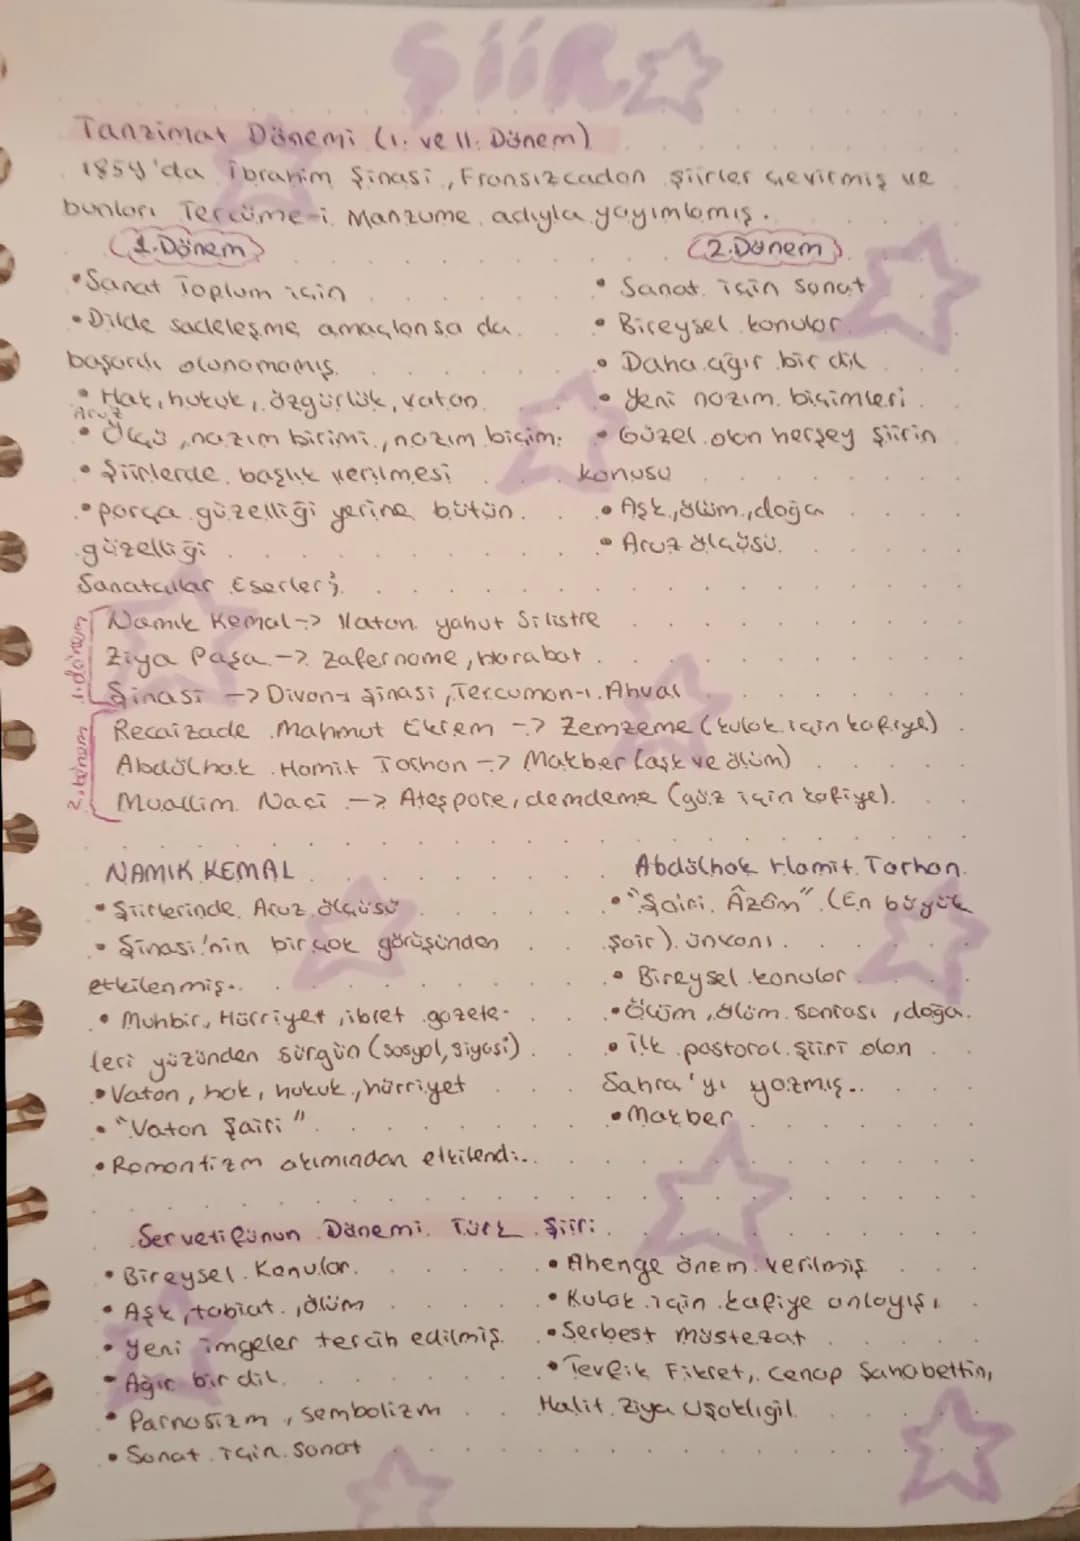 ŞİİR
Tanzimat Dönemi (I. ve II. Dönem)
1859'da İbrahim Şinasi, Fransızcadan şiirler çevirmiş ve
bunları Tercüme-i Manzume adıyla yayımlamış.
1.Dönem
• Sanat Toplum için
• Dilde sadeleşme amaçlansa da
başarılı olunamamış.
• Hak, hukuk, özgürlük, vatan
Aruz
• Ölçü, nazım birimi, nazım biçim.
• Şiirlerde başlık verilmesi
• parça güzelliği yerine bütün
güzelliği
2.Dönem
• Sanat için sanat
• Bireysel konular
• Daha ağır bir dil
• Yeni nazım biçimleri
• Güzel olan herşey şiirin
konusu
• Aşk, ölüm, doğa
• Aruz ölçüsü.
Sanatçılar Eserler;
1.dönem
Namık Kemal -> Vatan yahut Silistre
Ziya Paşa -> Zafername, Harabat
Şinasi -> Divan-ı Şinasi, Tercuman-ı Ahval
2.dönem
Recaizade Mahmut Ekrem -> Zemzeme (kulak için kafiye)
Abdülhak Hamit Tarhan -> Makber (aşk ve ölüm)
Muallim Naci -> Ateşpare, demdeme (göz için kafiye).
NAMIK KEMAL
• Şiirlerinde Aruz ölçüsü
• Şinasi'nin birçok görüşünden
etkilenmiş.
• Muhbir, Hürriyet, ibret gazete-
leri yüzünden sürgün (sosyal, siyasi)
• Vatan, hak, hukuk, hürriyet
• "Vatan Şairi"
• Romantizm akımından etkilendi.
Abdülhak Hamit Tarhan
• "Şairi Âzâm" (En büyük
şair) ünvanı.
• Bireysel konular
• Ölüm, ölüm sonrası, doğa.
• ilk pastoral şiiri olan
Sahra'yı yazmış.
• Makber
Servetifünun Dönemi Türk Şiiri
• Bireysel Konular.
• Aşk, tabiat, ölüm
• Yeni imgeler tercih edilmiş.
• Ağır bir dil.
• Parnasizm, sembolizm
• Sanat için sanat
• Ahenge önem verilmiş
• Kulak için kafiye anlayışı
• Serbest müstezat
• Tevfik Fikret, Cenap Şahabettin,
Halit Ziya Uşaklıgil.